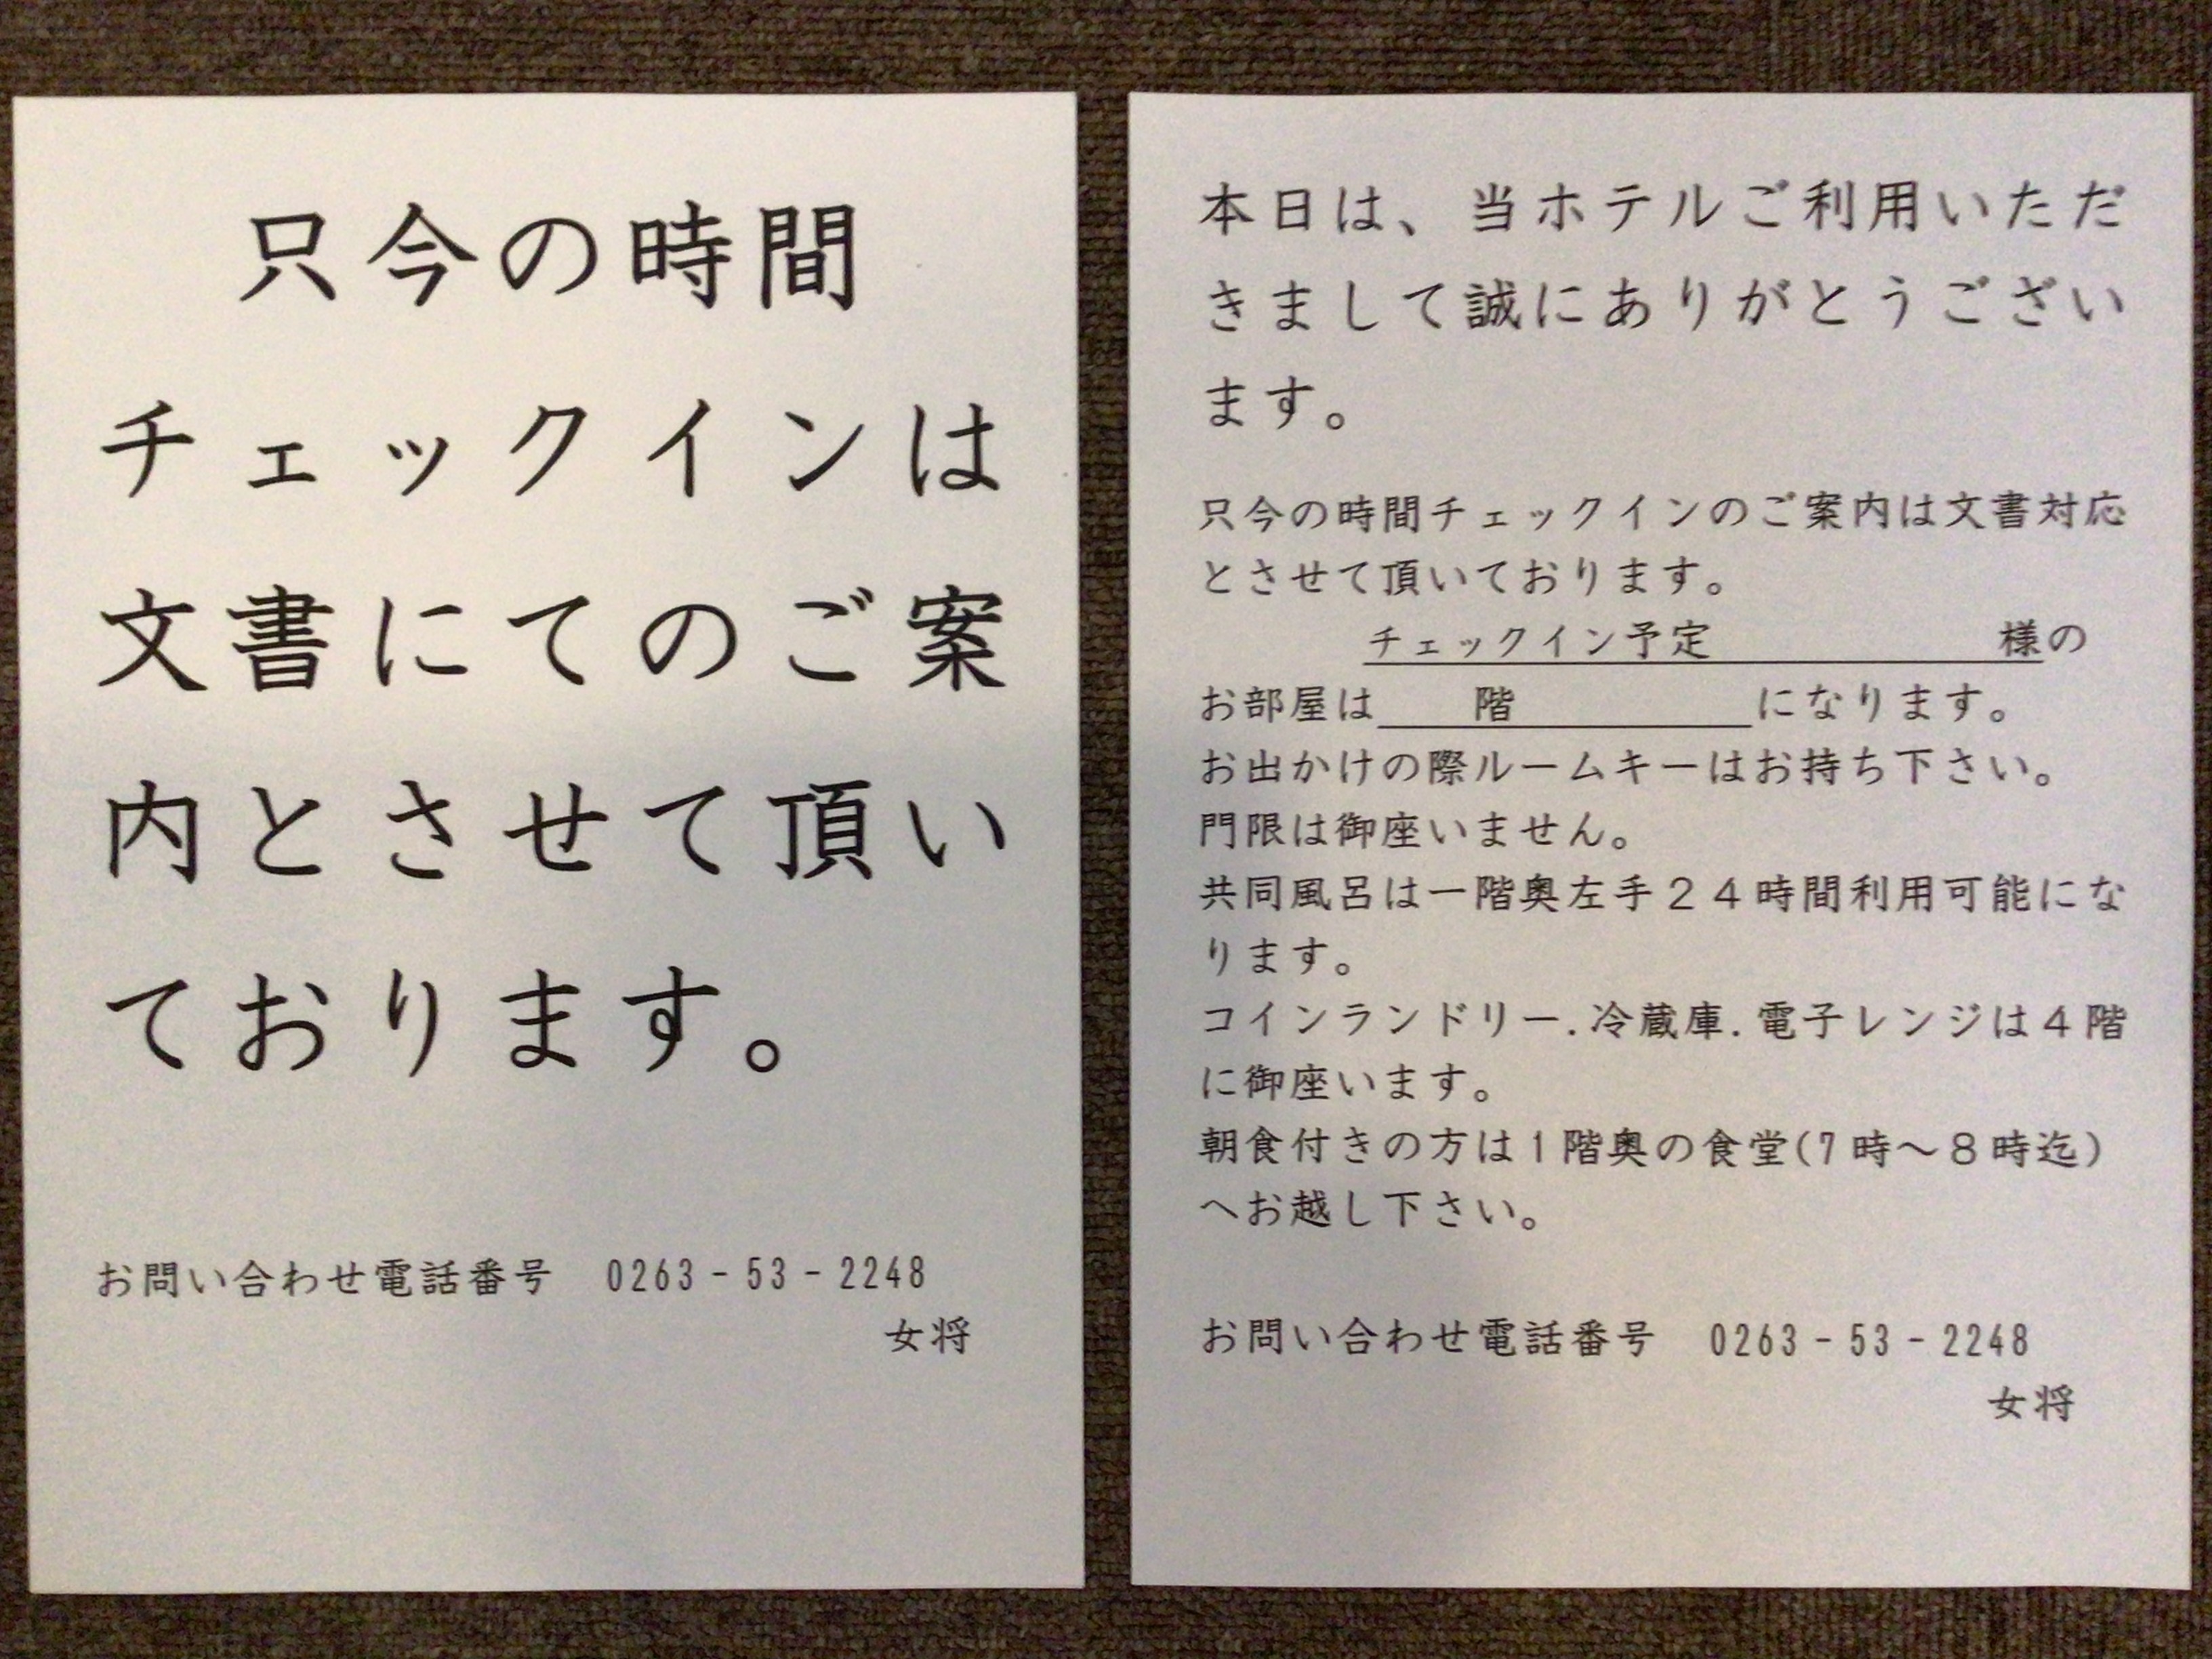 只今の時間
チェックインは
文書にてのご案
内とさせて頂い
ております。
お問い合わせ電話番号　0263-53-2248
女将
本日は、当ホテルご利用いただ
きまして誠にありがとうござい
ます。
只今の時間チェックインのご案内は文書対応
とさせて頂いております。
チェックイン予定　　　　　　様の
お部屋は　　階　　　　　になります。
お出かけの際ルームキーはお持ち下さい。
門限は御座いません。
共同風呂は一階奥左手２４時間利用可能にな
ります。
コインランドリー.冷蔵庫.電子レンジは４階
に御座います。
朝食付きの方は1階奥の食堂(7時～８時迄)
へお越し下さい。
お問い合わせ電話番号　0263-53-2248
女将